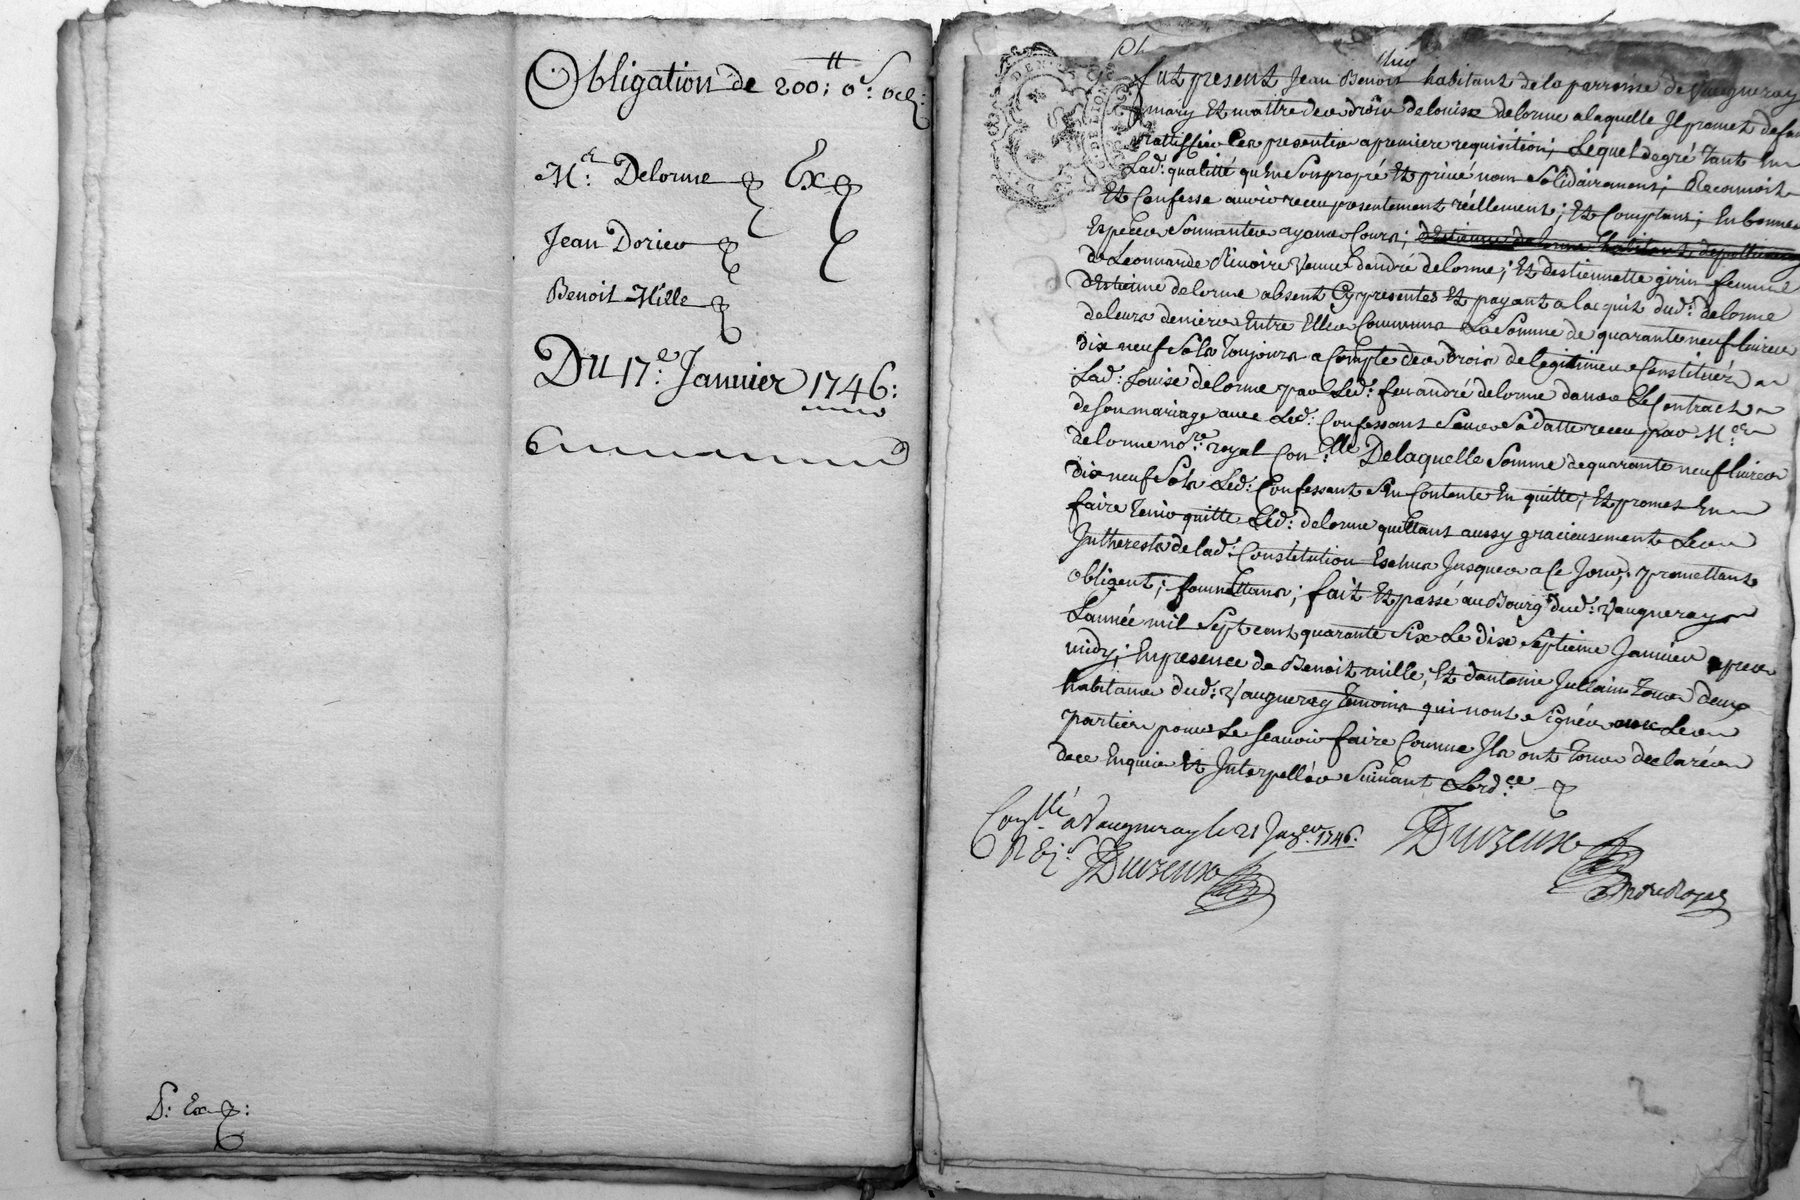 Obligation de 200: 0s: 0d:
tt
Me: Delorme Ex
Jean Dorieu
Benoit Mille
Du 17e: Janvier 1746:
S: Ex:
fut present Jean Benoit habitant de la parroisse de Vaugneray
mary et maitre des droits de Louise delorme a laquelle Il promet de faire
rattiffier Ces presentes a premiere requisition; Lequel de gré tant En
Lad: qualitté qu'En Son propre Et privé nom Solidairement; Reconnoit
Et Confesse avoir receu presentement réellement; Et Comptant; En bonnes
Especes Sonnantes ayant Cours;
de Leonnarde Rivoire Veuve d'andré delorme; Et d'estiennette girin femme
d'Estienne delorme absent Cy presentes Et payant a lacquit dud: delorme
de leurs deniers Entre Elles Communs La Somme de quarante neuf livres
dix neuf Sols Toujours a Compte des droits de legitimes Constitués a
Lad: Louise delorme par Led: feu andré delorme dans Le Contract
de Son mariage avec Led: Confessant Sous Sa datte receu par Me:
delorme nore: royal De laquelle Somme de quarante neuf livres
dix neuf Sols Led: Confessant S'en Contente En quitte; Et promet En
faire Tenir quitte Led: delorme quittant aussy gracieusement Les
Intherests de lad: Constitution Eschus Jusques a Ce Jour; promettant
obligent; Soumettant; fait Et passé au Bourg dud: Vaugneray
L'année mil Sept cent quarante Six Le dix Septieme Janvier apres
midy; En presence de Benoit mille, Et d'antoine Jullain Tous deux
habitants dud: Vaugneray Temoins qui n'ont Signés Les
parties pour ne Scavoir faire Comme Ils ont Tous declarés
de ce Enquis Et Interpellés Suivant Lordce:
Conllé a Vaugneray le 21 Janer 1746:
Duvzeux
Duvzeux